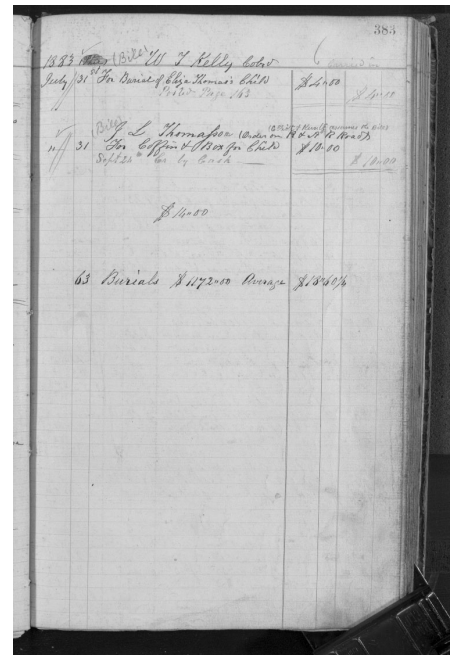 383
1883 (Bill) W T Kelly Cold
July 31st For Burial of Eliza Thomas's Child $4.00
Posted Page 163 $4.00
(Bill) J L Thomasson (Order on R R Road)
" 31 For Coffin & Box for Child $10.00
Sept 20th Cr by Cash $10.00
$14.00
63 Burials $1172.00 Average $18.60